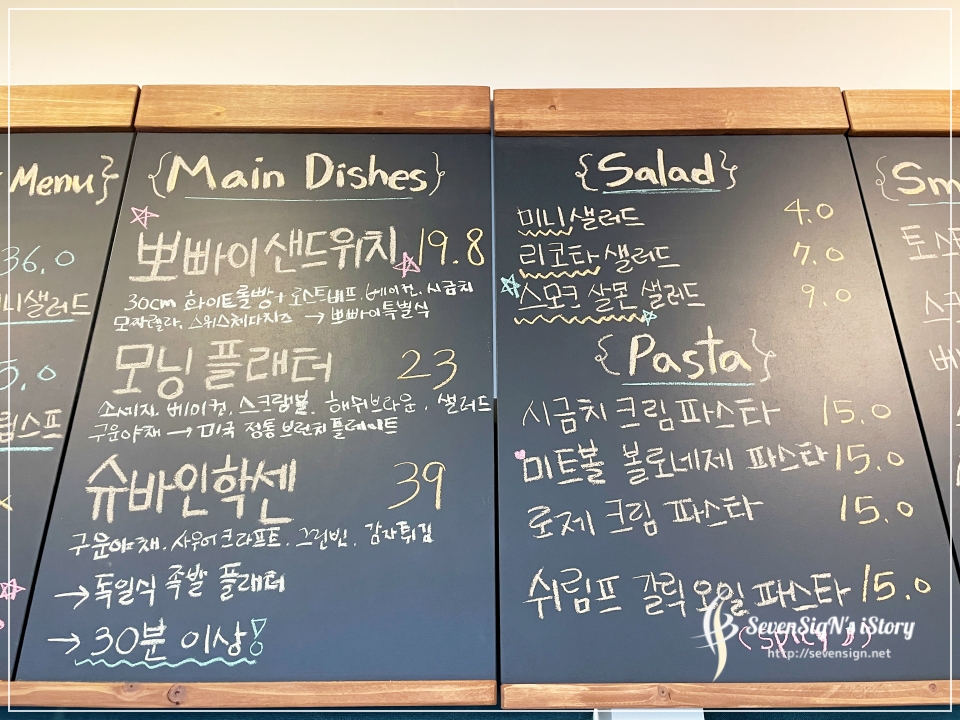 Menu}
36.0
니샐러드
5.0
림스프
{Main Dishes}
뽀빠이 샌드위치 19.8
30cm 화이트롤빵+로스트비프. 베이컨. 시금치
모짜렐라. 스위스체다치즈 → 뽀빠이특별식
모닝 플래터 23
소세지. 베이컨. 스크램블. 해쉬브라운. 샐러드
구운야채 → 미국 정통 브런치플레이트
슈바인학센 39
구운야채. 사우어크라프트. 그린빈. 감자튀김
→ 독일식 족발 플래터
→ 30분 이상!
{Salad}
미니샐러드 4.0
리코타 샐러드 7.0
스모크 살몬 샐러드 9.0
{Pasta}
시금치 크림 파스타 15.0
미트볼 볼로네제 파스타 15.0
로제 크림 파스타 15.0
쉬림프 갈릭 오일 파스타 15.0
(Spicy♪)
{Sm
토스
스크
베
SevenSigN's iStory
http://sevensign.net